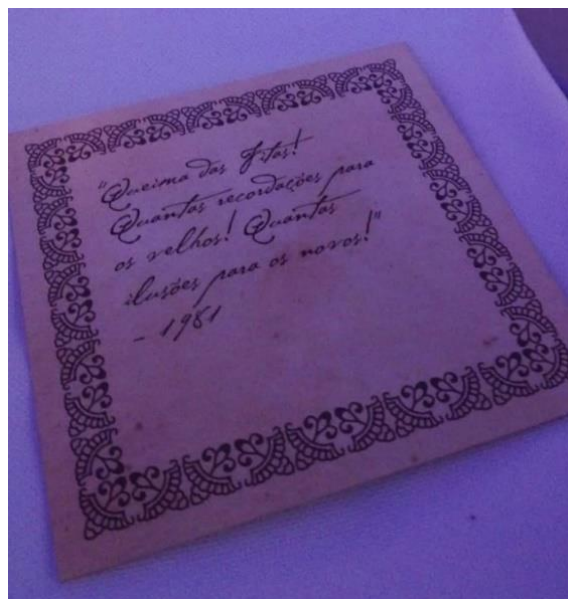 "Queima das Fitas!
Quantas recordações para
os velhos! Quantas
ilusões para os novos!"
- 1981